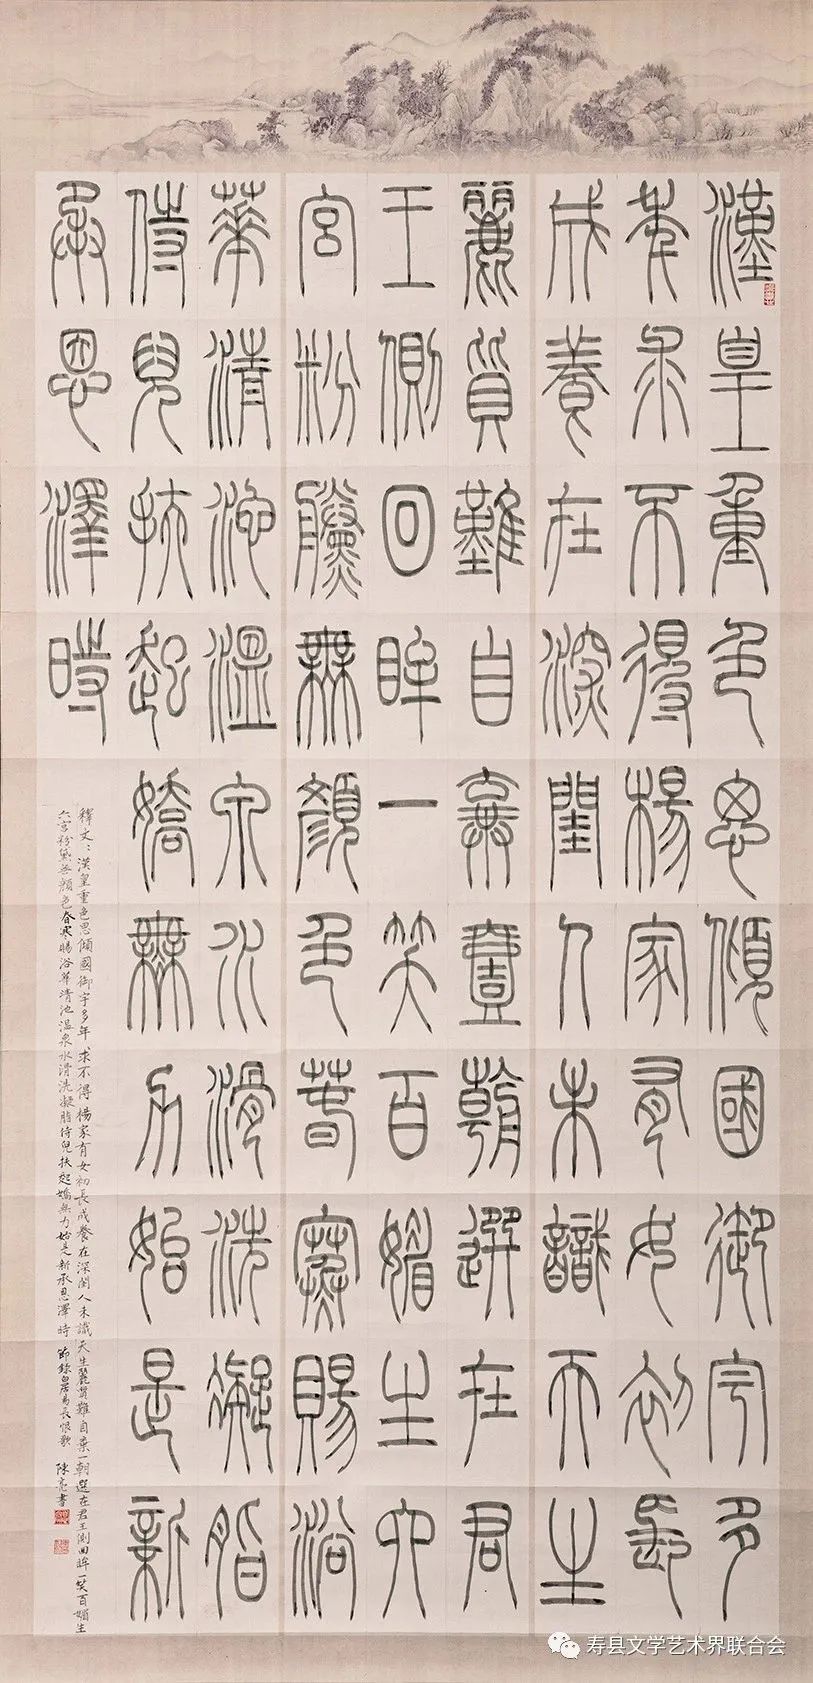 漢皇重色思傾國御宇多
年求不得楊家有女初長
成養在深閨人未識天生
麗質難自棄壹朝選在君
王側回眸一笑百媚生六
宮粉黛無顏色春寒賜浴
華清池溫泉水滑洗凝脂
侍兒扶起嬌無力始是新
承恩澤時
釋文：漢皇重色思傾國御宇多年求不得楊家有女初長成養在深閨人未識天生麗質難自棄一朝選在君王側回眸一笑百媚生
六宮粉黛無顏色春寒賜浴華清池溫泉水滑洗凝脂侍兒扶起嬌無力始是新承恩澤時 節錄白居易長恨歌 陳亮書
寿县文学艺术界联合会